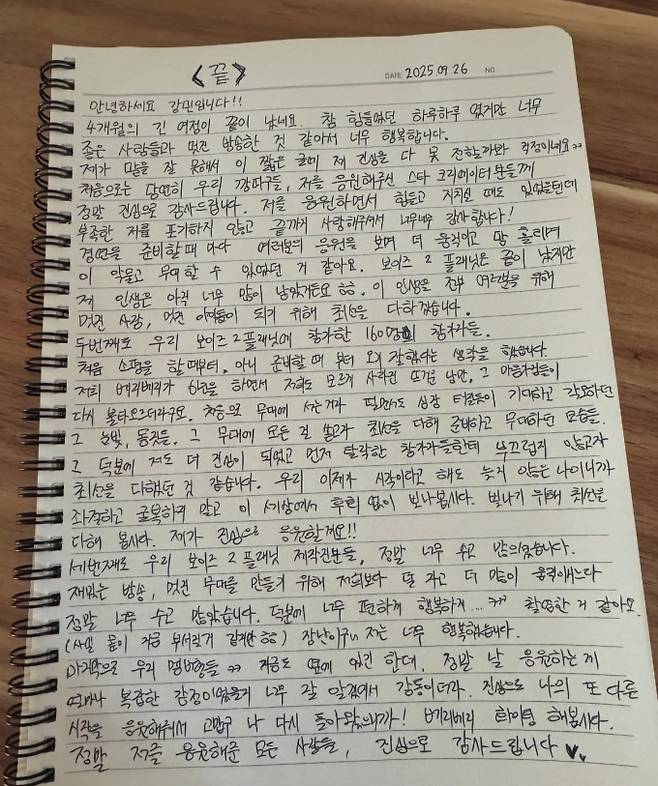 <끝>
DATE 2025.09.26 NO
안녕하세요 강민입니다!!
4개월의 긴 여정이 끝이 났네요. 참 힘들었던 하루하루 였지만 너무
좋은 사람들과 멋진 방송한 것 같아서 너무 행복합니다.
제가 말을 잘 못해서 이 짧은 글이 제 진심을 다 못 전할까봐 걱정이네요ㅠㅠ
처음으로는 당연히 우리 깡파구들, 저를 응원해주신 스타 크리에이터 분들께
정말 진심으로 감사드립니다. 저를 응원하면서 힘들고 지치실 때도 있었을텐데
부족한 저를 포기하지 않고 끝까지 사랑해주셔서 너무너무 감사합니다!
경연을 준비할 때 마다 여러분의 응원을 보며 더 움직이고 땀 흘리며
이 악물고 무대할 수 있었던 거 같아요. 보이즈 2 플래닛은 끝이 났지만
저 인생은 아직 너무 많이 남았거든요 ㅎㅎ. 이 인생을 전부 여러분을 위해
멋진 사람, 멋진 아이돌이 되기 위해 최선을 다하겠습니다.
두번째로 우리 보이즈 2 플래닛에 참가한 160명의 참가자들.
처음 스핑을 할 때부터, 아니 준비할 때 부터 오길 잘했다는 생각을 했습니다.
저희 베리베리가 6년을 하면서 저희도 모르게 사라진 뜨거운 낭만, 그 마음가짐들이
다시 불타오르더라구요. 처음으로 무대에 서는거라 떨면서도 심장 터질듯이 기대하고 각오하던
그 눈빛, 몸짓들. 그 무대에 모든 걸 쏟고자 최선을 다해 준비하고 무대하던 모습들.
그 덕분에 저도 더 진심이 되었고 먼저 탈락한 참가자들한테 부끄럽지 않고자
최선을 다했던 것 같습니다. 우리 이제가 시작이라고 해도 늦지 않은 나이니까
좌절하고 굴복하지 말고 이 세상에서 후회 없이 보내봅시다. 빛나기 위해 최선을
다해 봅시다. 제가 진심으로 응원할게요!!
세번째로 우리 보이즈 2 플래닛 제작진분들, 정말 너무 수고 많으셨습니다.
재밌는 방송, 멋진 무대를 만들기 위해 저희보다 덜 자고 더 많이 움직이느라
정말 너무 수고 많았습니다. 덕분에 너무 편하게 행복하게... ㅋㅋ 촬영한 거 같아요.
(사실 몸이 지금 부서질거 같지만 ㅎㅎ) 장난이구 저는 너무 행복했습니다.
마지막으로 우리 멤버형들 ㅠㅠ 지금도 옆에 있긴 한데, 정말 날 응원하는게
얼마나 복잡한 감정이었을지 너무 잘 알겠어서 감동이더라. 진심으로 나의 또 다른
시작을 응원해줘서 고맙구 나 다시 돌아왔으니까! 베리베리 화이팅 해봅시다.
정말 저를 응원해준 모든 사람들, 진심으로 감사드립니다 ♥♥